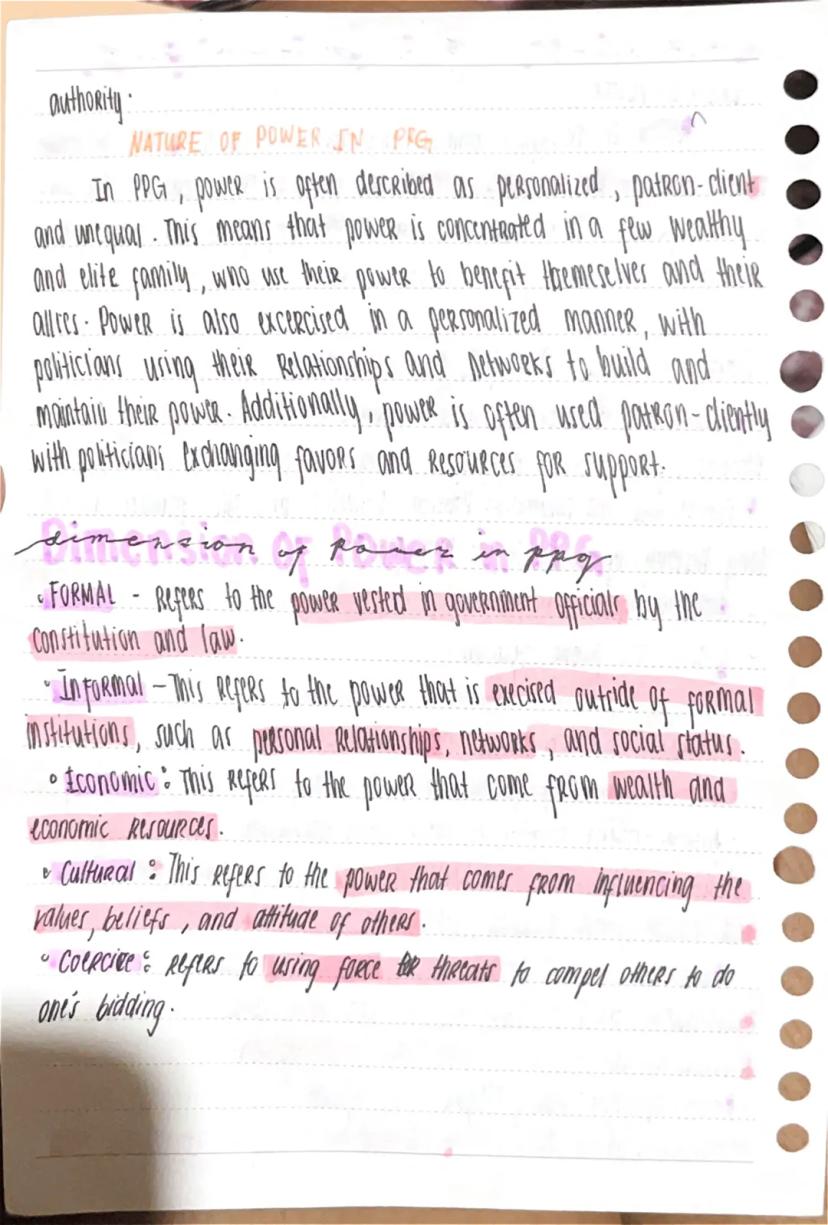 authority.
NATURE OF POWER IN PPG
In PPG, power is often described as personalized, patron-client
and unequal. This means that power is concentrated in a few wealthy
and elite family, who use their power to benefit themeselves and their
allies. Power is also excercised in a personalized manner, with
politicians using their relationships and networks to build and
maintain their power. Additionally, power is often used patron-cliently
with politicians exchanging favors and resources for support.
Dimension of Power in PPG
dimension of power in ppg
• FORMAL - Refers to the power vested in government officials by the
constitution and law.
• Informal - This refers to the power that is execised outside of formal
institutions, such as personal relationships, networks, and social status.
• Economic: This refers to the power that come from wealth and
economic resources.
• Cultural: This refers to the power that comes from influencing the
values, beliefs, and attitude of others.
• Coercive: refers to using force or threats to compel others to do
one's bidding.